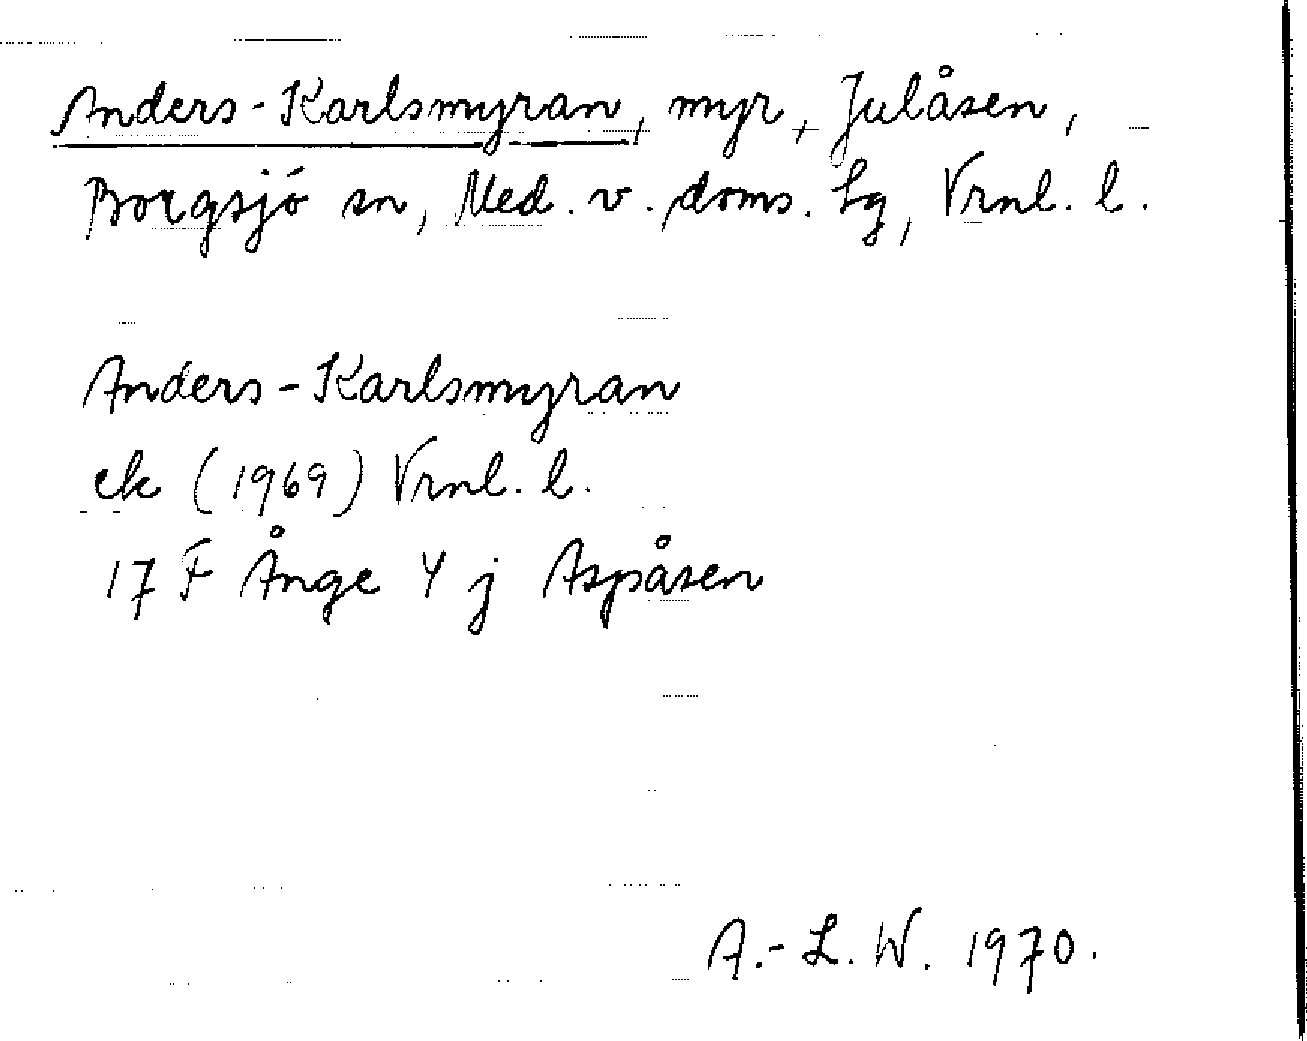 Anders-Karlsmyran, myr, Julåsen,
Borgsjö sn, Med. v. doms. lg, Vrnl. l.
Anders-Karlsmyran
ek (1969) Vrnl. l.
17 F Ånge 4 j Aspåsen
A.-L. W. 1970.